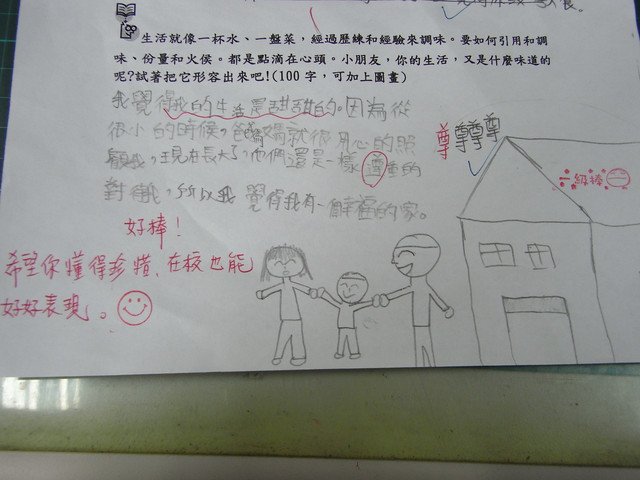 生活就像一杯水、一盤菜，經過歷練和經驗來調味。要如何引用和調
味、份量和火侯。都是點滴在心頭。小朋友，你的生活，又是什麼味道的
呢?試著把它形容出來吧!(100 字，可加上圖畫)
我覺得我的生活是甜甜的。因為從
很小的時候，爸媽就很用心的照
顧我，現在長大了，他們還是一樣尊重的
對待我，所以我覺得我有一個幸福的家。
尊尊尊尊
一級棒
好棒！
希望你懂得珍惜、在校也能
好好表現。